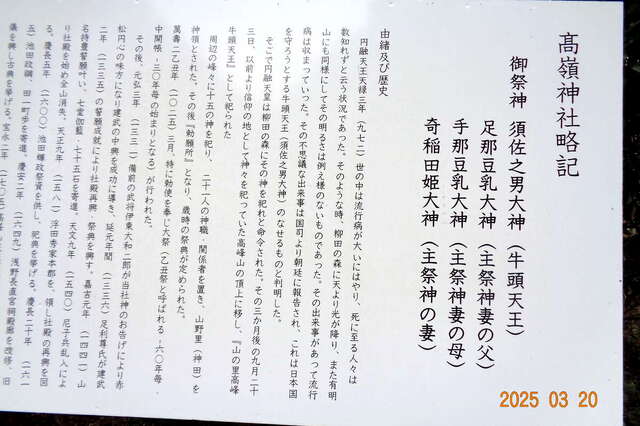 高嶺神社略記
御祭神 須佐之男大神(牛頭天王)
足那豆乳大神(主祭神妻の父)
手那豆乳大神(主祭神妻の母)
奇稲田姫大神(主祭神の妻)
由緒及び歴史
円融天王天禄三年(九七二)世の中は流行病が大いにはやり、死に至る人々は
数知れずと云う状況であった。そのような時、柳田の森に天より光が降り、また有明
山にも同様にしてその明るさは例え様のないものであった。その出来事があって流行
病は収まっていった。その不思議な出来事は国司より朝廷に報告され、これは日本国
を守ろうとする牛頭天王(須佐之男大神)のなせるものと判明した。
そこで円融天皇は柳田の森にその神を祀れと命令された。その三か月後の九月二十
三日、以前より信仰の地として神々を祀っていた高峰山の頂上に移し、『山の里高峰
牛頭天王』として祀られた
周辺の峰々に十五の神を祀り、二十一人の神職、関係者を置き、山野里(神田)を
神領とされた。その後『勅願所』となり、歳時の祭典が定められた。
萬壽二乙丑年(一〇二五)三月、特に勅使を奉じ大祭(乙丑祭と呼ばれる-六〇年毎-
中開帳-三〇年毎の始まりとなる)が行われた。
その後、元弘三年(一三三一)備前の武将伊東大和二郎が当社神のお告げにより赤
松円心の味方になり建武の中興を成功に導き、延元年間(一三三六)足利尊氏が建武
二年(一三三五)の誓願成就により社殿再興 祭典を興す。嘉吉元年(一四四一)山
名持豊誓願叶い、七堂伽藍・七十五石を寄進、天文九年(一五四〇)尼子兵乱入によ
り社殿を始め全山消失、天正九年(一五八一)浮田秀家本郡を、領し社殿の再興を図
る。慶長五年(一六〇〇)池田輝政祭資を供し、祀典を挙げる。慶長二十年(一六一
五)池田政綱、田一町歩を寄進、慶安二年(一六四九)浅野長直宮祠殿廊を改修、旧
儀を興し古典を挙げる。宝永二年(一七〇五)
2025 03 20